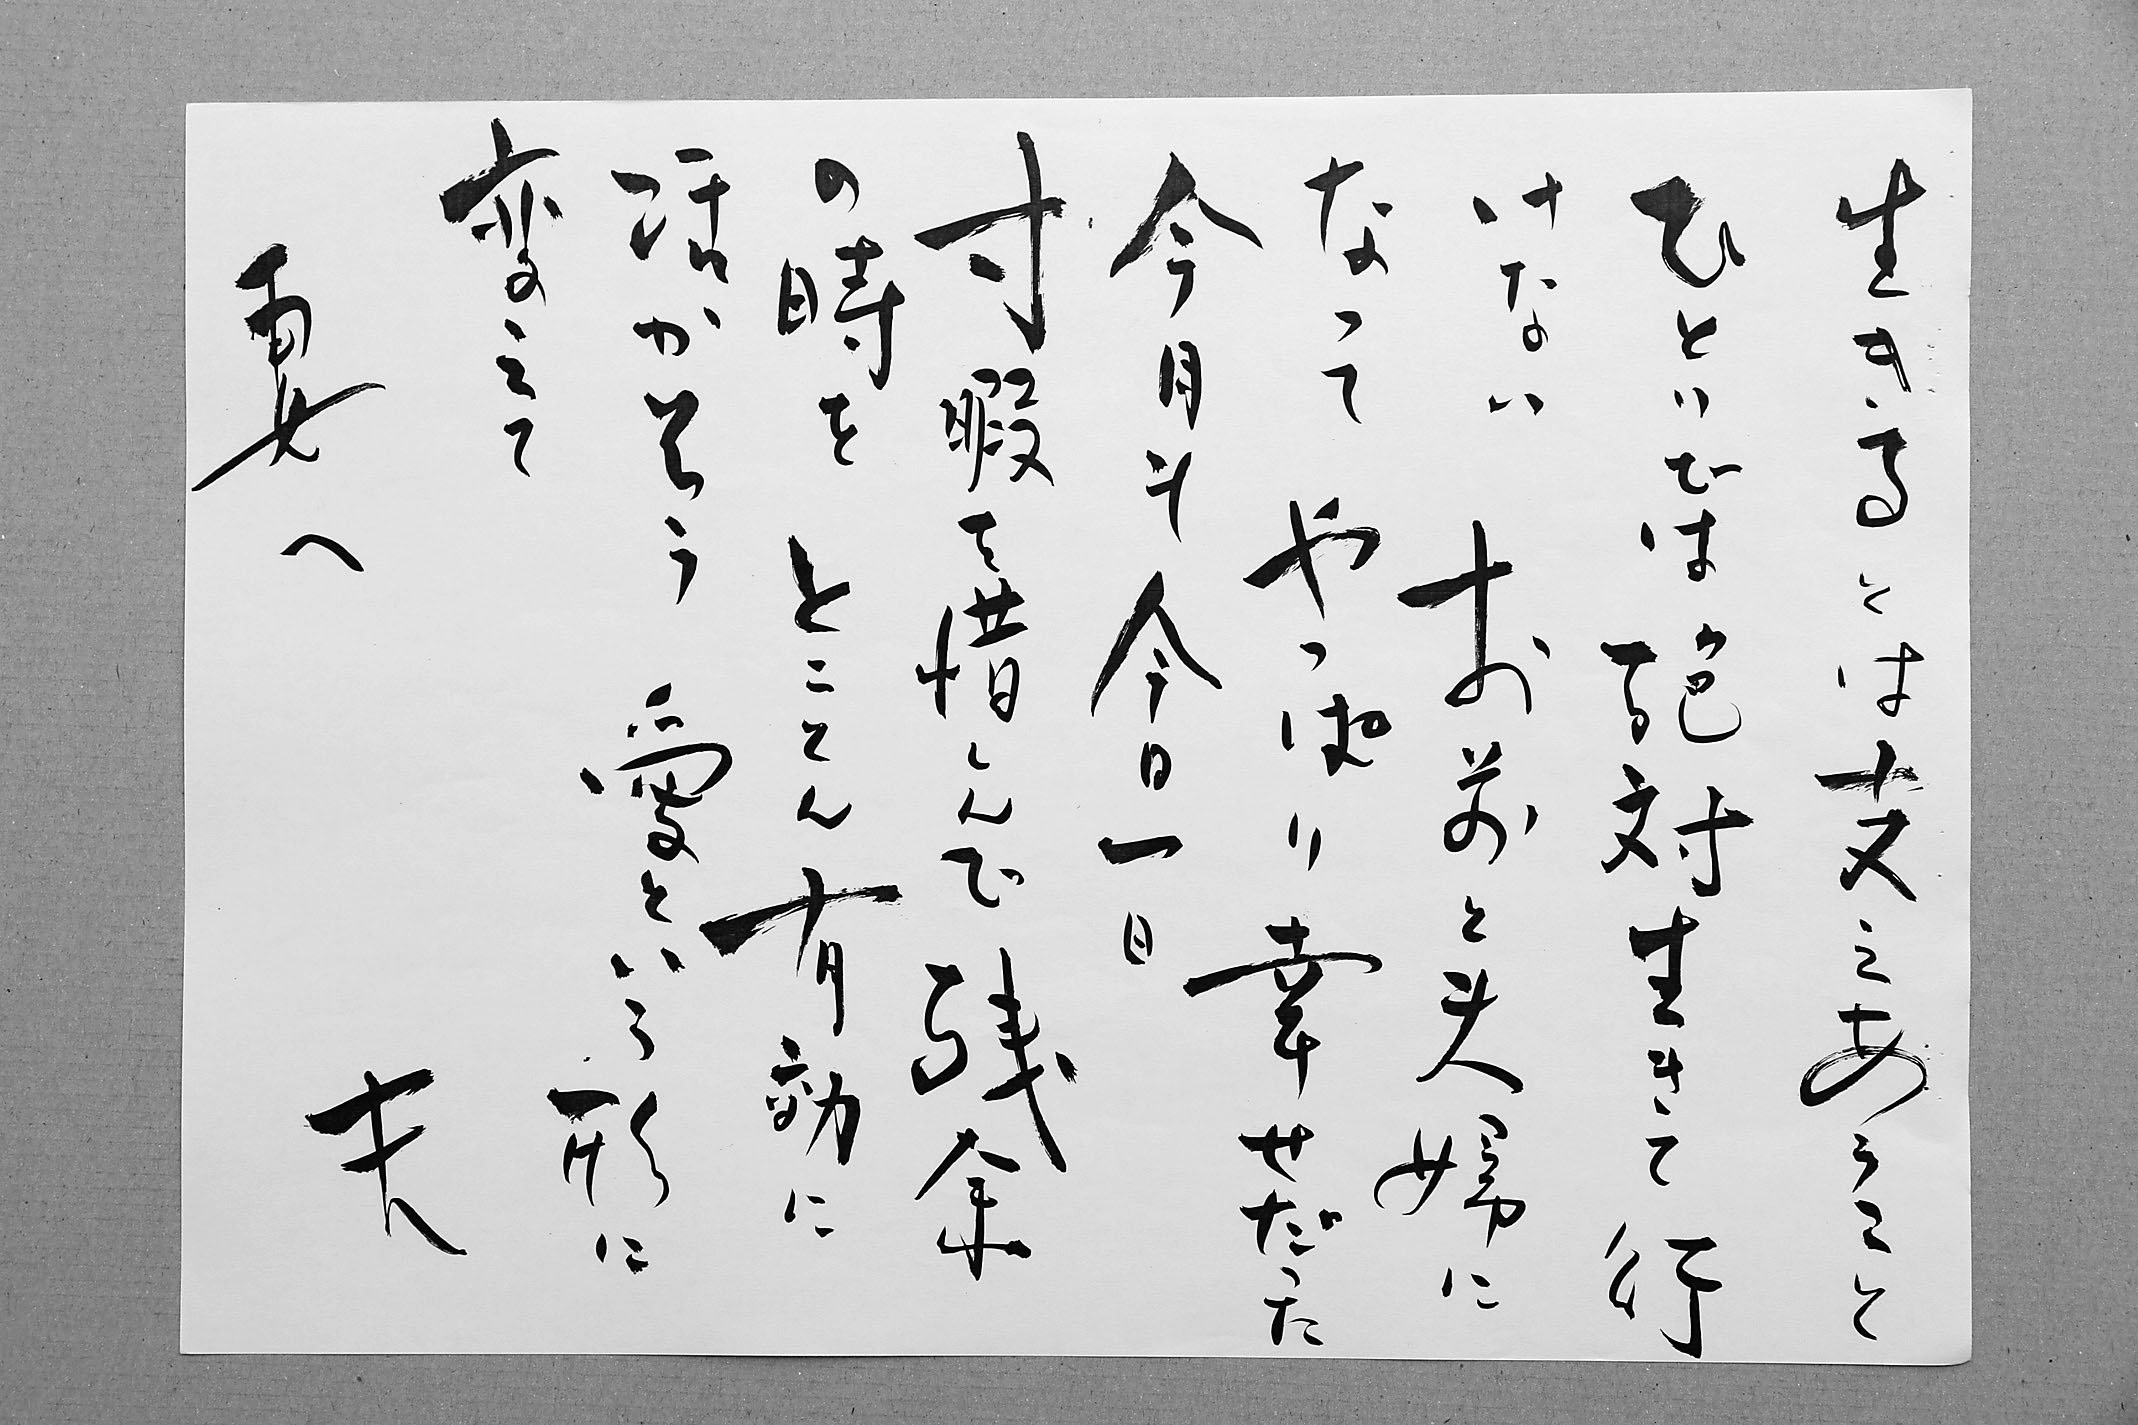 生きるとは支えあうこと
ひとりでは絶対生きて行
けない お前と夫婦に
なって やっぱり幸せだった
今月も 今日一日
寸暇を惜しんで 残余
の時を とことん有効に
活かそう 愛という形に
変えて
妻へ 夫